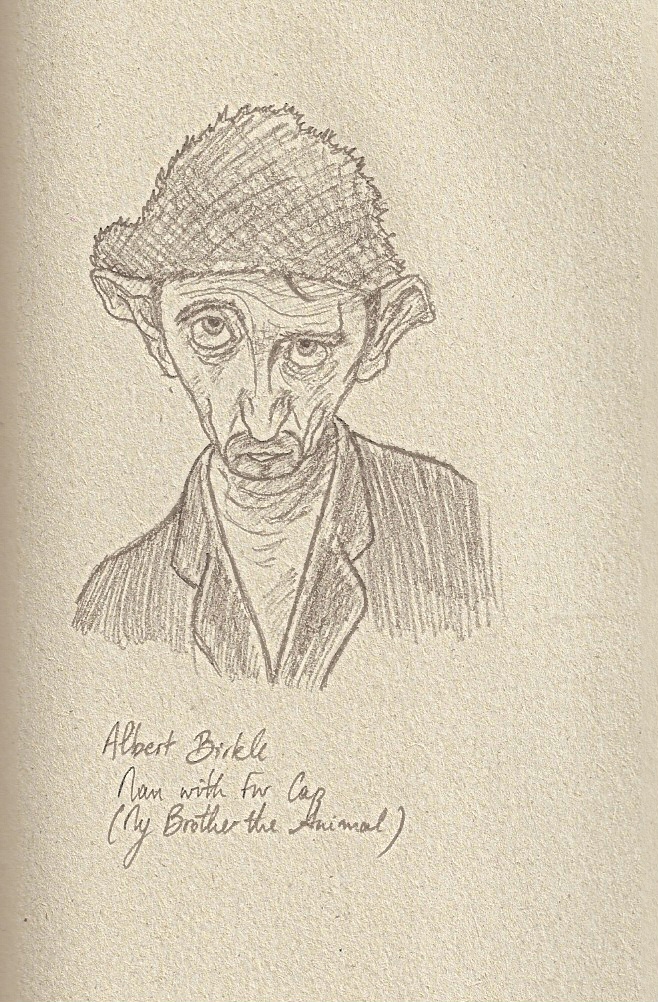 Albert Birkle
Man with Fur Cap
(My Brother the Animal)